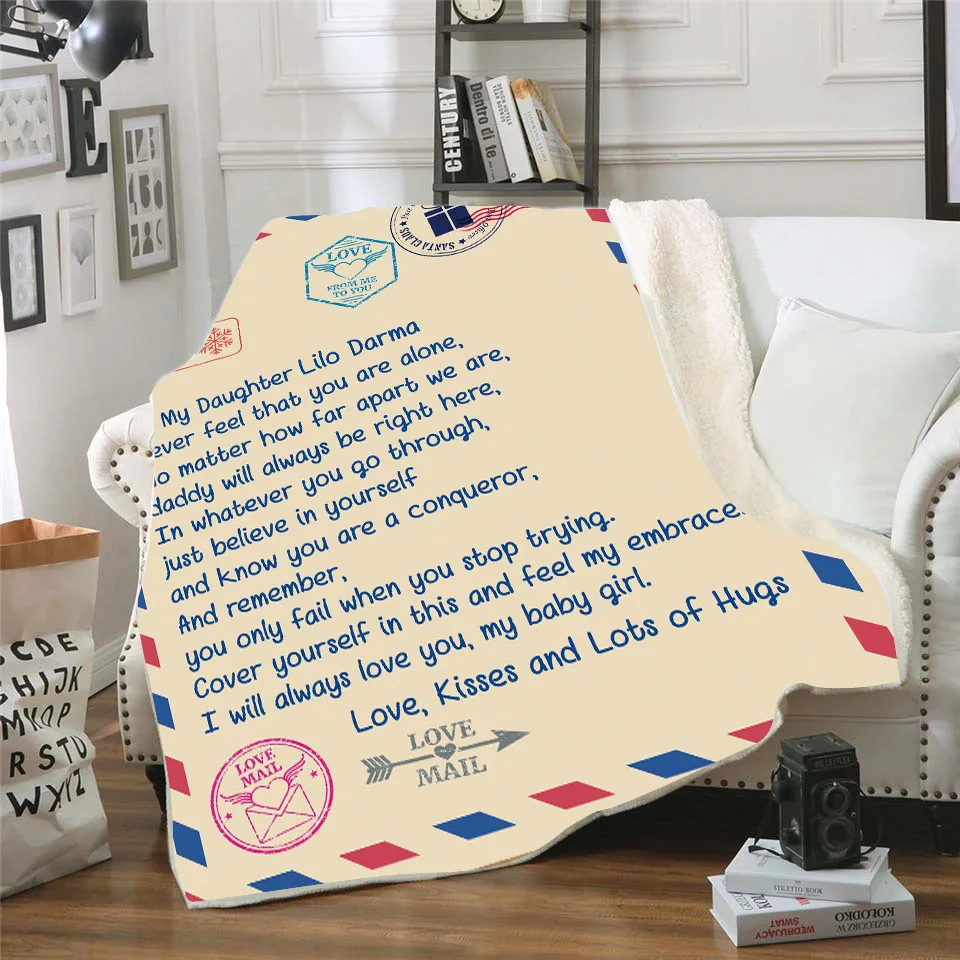 E
CENTURY
Dentro di te
DESIGN HOTELS
YEAR BOOK!
SANTA CLAUS
LOVE
FROM ME
TO YOU
My Daughter Lilo Darma
ever feel that you are alone,
o matter how far apart we are,
daddy will always be right here,
In whatever you go through,
just believe in yourself
and know you are a conqueror,
And remember,
you only fail when you stop trying.
Cover yourself in this and feel my embrace.
I will always love you, my baby girl.
Love, Kisses and Lots of Hugs
LOVE
MAIL
LOVE
MAIL
CDE
GHIJK
MNOP
RSTU
WXYZ
ROLLEIFLEX
STILETTO BOOK
WĘDRUJĄCY
ŚWIAT
GRZEGORZ W.
KOŁODKO